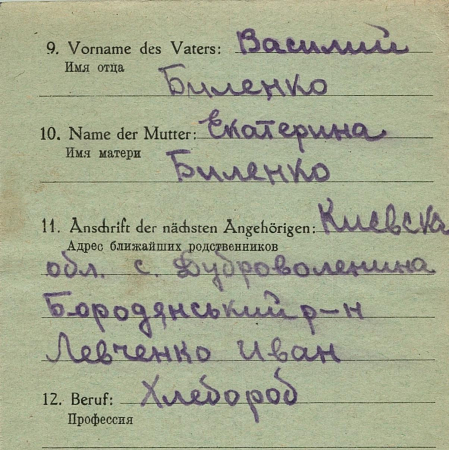 9. Vorname des Vaters: Василий
Имя отца
Биленко
10. Name der Mutter: Екатерина
Имя матери
Биленко
11. Anschrift der nächsten Angehörigen: Киевска
Адрес ближайших родственников
обл. с. Дуброволенина
Бородянський р-н
Левченко Иван
12. Beruf: Хлебороб
Профессия